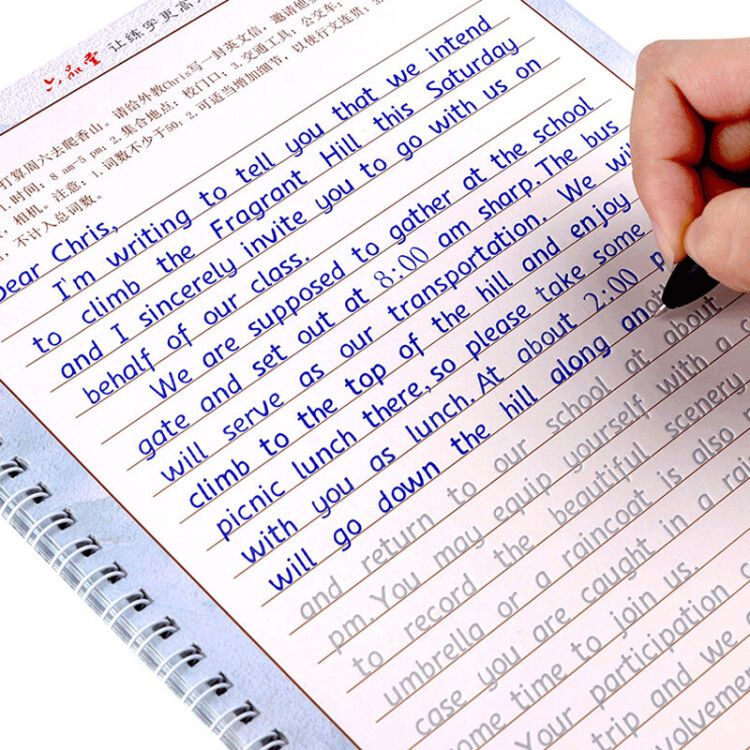 六品堂 让练字更高
打算周六去爬香山。请给外教Chris写一封英文信，邀请他
1.时间：8 am-5 pm；2.集合地点：校门口；3.交通工具：公交车；
，相机。注意：1.词数不少于50；2.可适当增加细节，以使行文连贯；3.
，不计入总词数。
Dear Chris,
I'm writing to tell you that we intend
to climb the Fragrant Hill this Saturday
and I sincerely invite you to go with us on
behalf of our class.
We are supposed to gather at the school
gate and set out at 8:00 am sharp. The bus
will serve as our transportation. We will
climb to the top of the hill and enjoy
picnic lunch there, so please take some
with you as lunch. At about 2:00 p
will go down the hill along ano
and return to our school at about
pm. You may equip yourself with a
to record the beautiful scenery
umbrella or a raincoat is also
case you are caught in a rai
some time to join us.
Your participation
trip and we
volvement